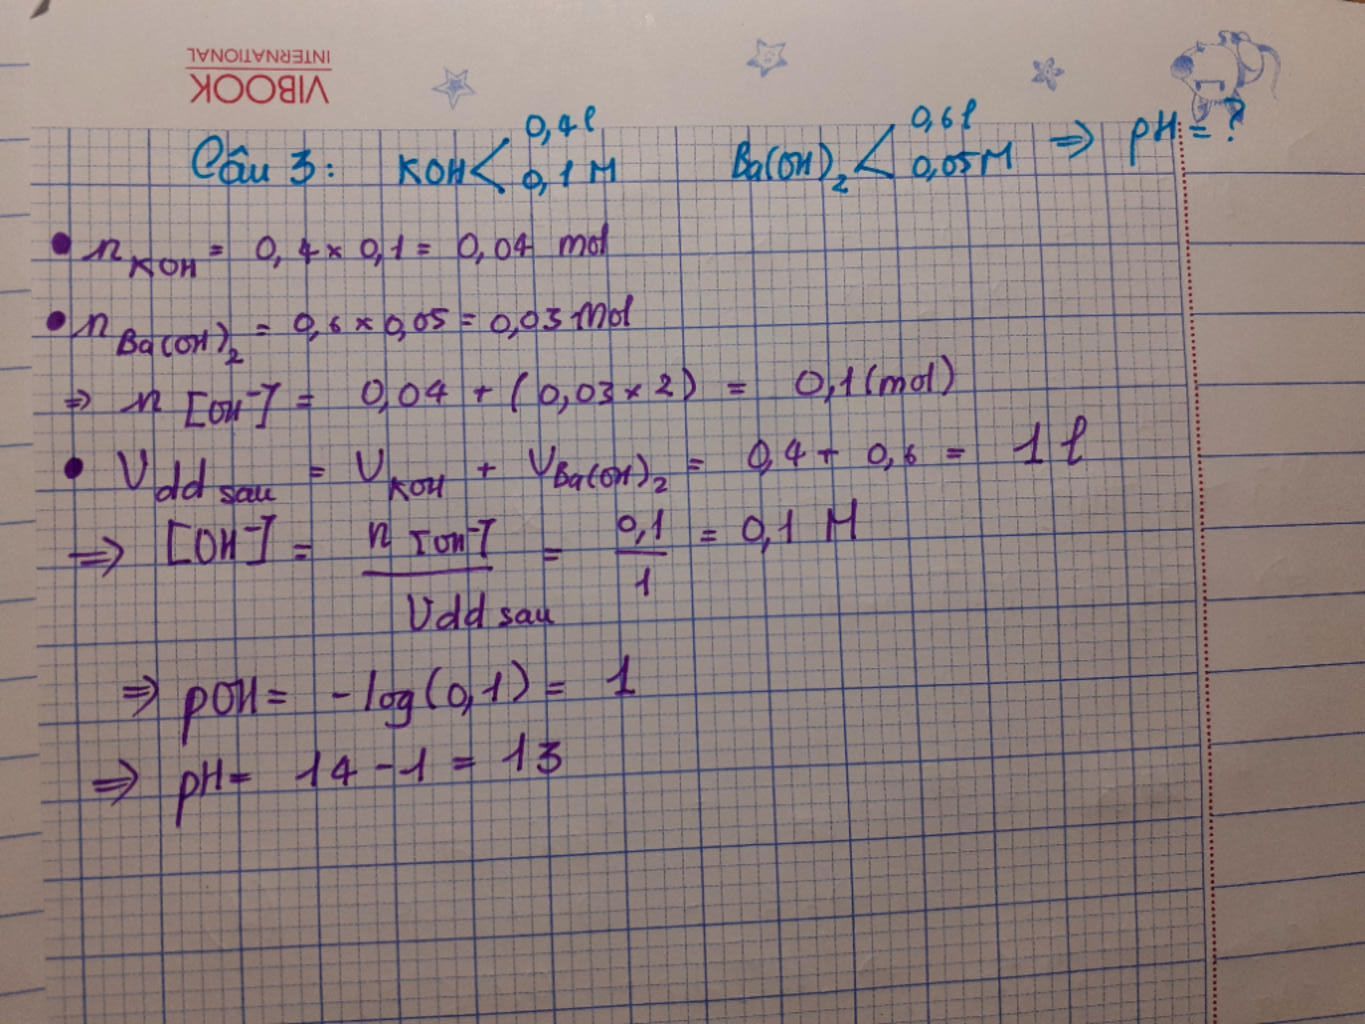 VIBOOK
INTERNATIONAL
Câu 3: KOH < 0,4l 0,1 M Ba(OH)₂ < 0,6l 0,05M ⇒ pH = ?
• n KOH = 0,4 × 0,1 = 0,04 mol
• n Ba(OH)₂ = 0,6 × 0,05 = 0,03 mol
⇒ n [OH⁻] = 0,04 + (0,03 × 2) = 0,1 (mol)
• Vdd sau = VKOH + VBa(OH)₂ = 0,4 + 0,6 = 1 l
⇒ [OH⁻] = n [OH⁻] / Vdd sau = 0,1 / 1 = 0,1 M
⇒ pOH = -log(0,1) = 1
⇒ pH = 14 - 1 = 13